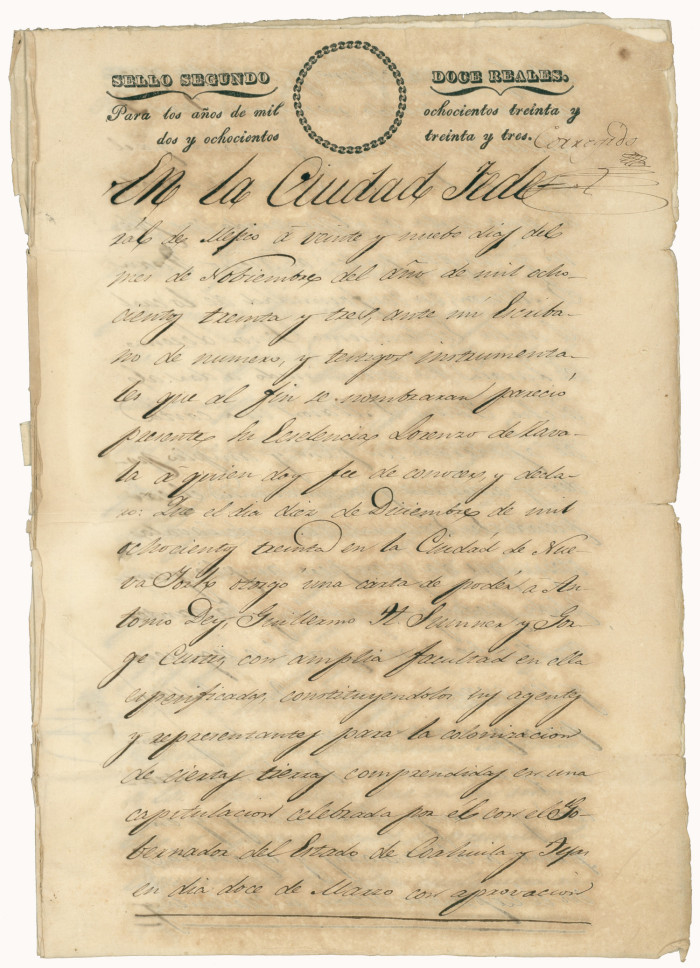 SELLO SEGUNDO DOCE REALES.
Para los años de mil ochocientos treinta y
dos y ochocientos treinta y tres. Corregido
En la Ciudad Fede
ral de Mejico á veinte y nuebe dias del
mes de Nobiembre del año de mil ocho-
cientos treinta y tres, ante mi Escriba-
no de numero, y testigos instrumenta-
les que al fin se nombraran parecio
presente Su Ecselencia Lorenzo de Zava-
la á quien doy fee de conocer, y decla-
ro: Que el dia diez de Diciembre de mil
ochocientos treinta en la Ciudad de Nue-
va York otorgó una carta de poder a An-
tonio Dey, Guillermo H. Sumner y Jor-
ge Curtis, con amplia facultad en ella
especificada, constituyendolos sus agentes
y representantes para la colonizacion
de ciertas tierras comprendidas en una
capitulacion celebrada por él con el Go-
bernador del Estado de Coahuila y Tejas
en dia doce de Marzo con aprovacion